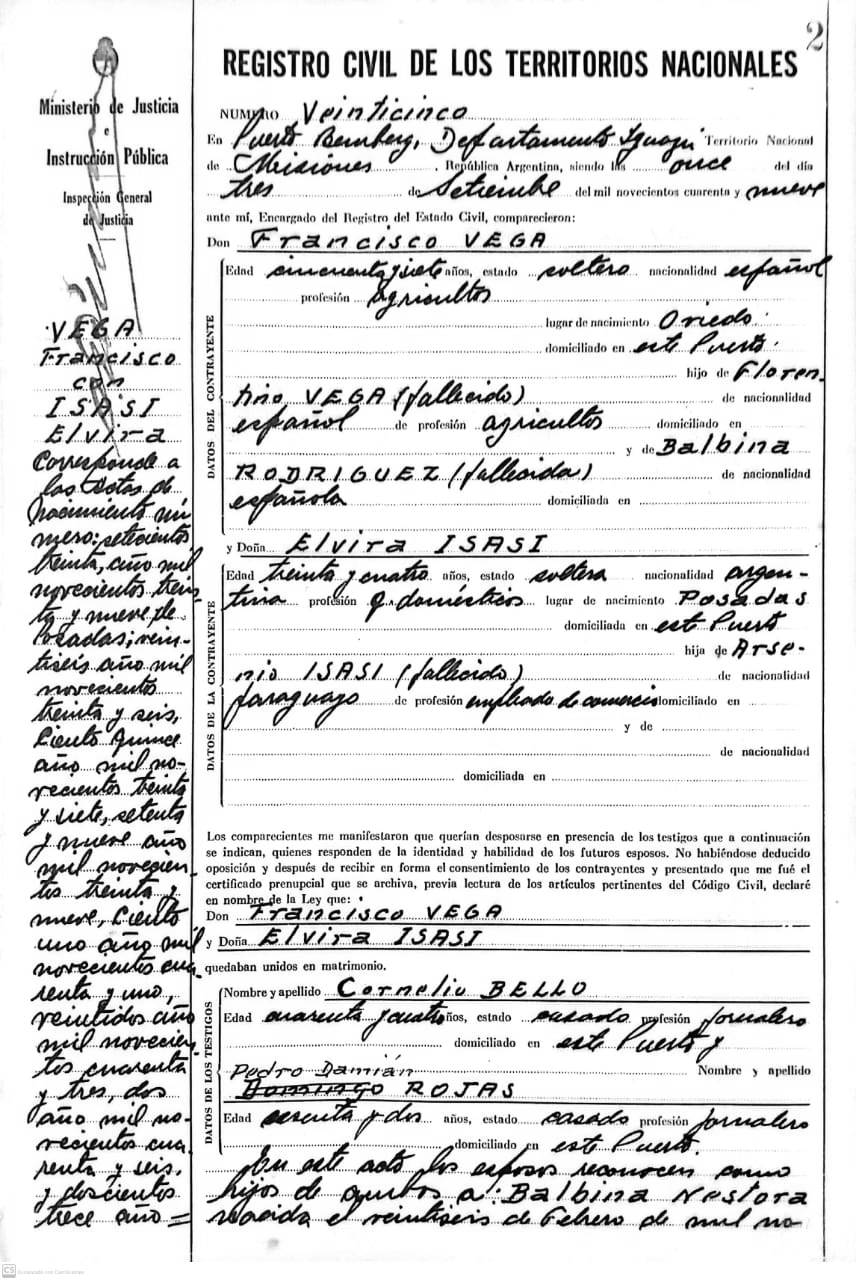 2
REGISTRO CIVIL DE LOS TERRITORIOS NACIONALES
Ministerio de Justicia
e
Instrucción Pública
Inspección General
de Justicia
VEGA
Francisco
con
ISASI
Elvira
Corresponde a
las actas de
nacimiento nú
mero: setecientos
treinta, año mil
novecientos trein
ta y nueve de
Posadas; vein
tiseis año mil
novecientos
treinta y seis,
Ciento quince
año mil no-
vecientos treinta
y siete, setenta
y nueve año
mil novecien
tos treinta y
nueve, Ciento
uno año mil
novecientos cua
renta y uno,
veintidos año
mil novecien
tos cuarenta
y tres, dos
año mil no-
vecientos cua
renta y seis,
y doscientos
trece año =
NUMERO Veinticinco
En Puerto Bemberg, Departamento Iguazú Territorio Nacional
de Misiones, República Argentina, siendo las once del día
tres de Setiembre del mil novecientos cuarenta y nueve
ante mí, Encargado del Registro del Estado Civil, comparecieron:
Don Francisco VEGA
DATOS DEL CONTRAYENTE
Edad cincuenta y siete años, estado soltero nacionalidad español
profesión agricultor
lugar de nacimiento Oviedo
domiciliado en este Puerto
hijo de Floren
tino VEGA (fallecido) de nacionalidad
español de profesión agricultor domiciliado en
y de Balbina
RODRIGUEZ (fallecida) de nacionalidad
española domiciliada en
y Doña Elvira ISASI
DATOS DE LA CONTRAYENTE
Edad treinta y cuatro años, estado soltera nacionalidad argen-
tina profesión q. domésticos lugar de nacimiento Posadas
domiciliada en este Puerto
hija de Arse-
nio ISASI (fallecido) de nacionalidad
paraguayo de profesión empleado de comercio domiciliado en
y de
de nacionalidad
domiciliada en
Los comparecientes me manifestaron que querían desposarse en presencia de los testigos que a continuación
se indican, quienes responden de la identidad y habilidad de los futuros esposos. No habiéndose deducido
oposición y después de recibir en forma el consentimiento de los contrayentes y presentado que me fué el
certificado prenupcial que se archiva, previa lectura de los artículos pertinentes del Código Civil, declaré
en nombre de la Ley que:
Don Francisco VEGA
y Doña Elvira ISASI
quedaban unidos en matrimonio.
DATOS DE LOS TESTIGOS
Nombre y apellido Cornelio BELLO
Edad cuarenta y cuatro años, estado casado profesión jornalero
domiciliado en este Puerto y
Pedro Damián Nombre y apellido
Domingo ROJAS
Edad sesenta y dos años, estado casado profesión jornalero
domiciliado en este Puerto.
En este acto los esposos reconocen como
hijos de ambos a: Balbina Nestora
nacida el veintiseis de Febrero de mil no-
CS Escaneado con CamScanner